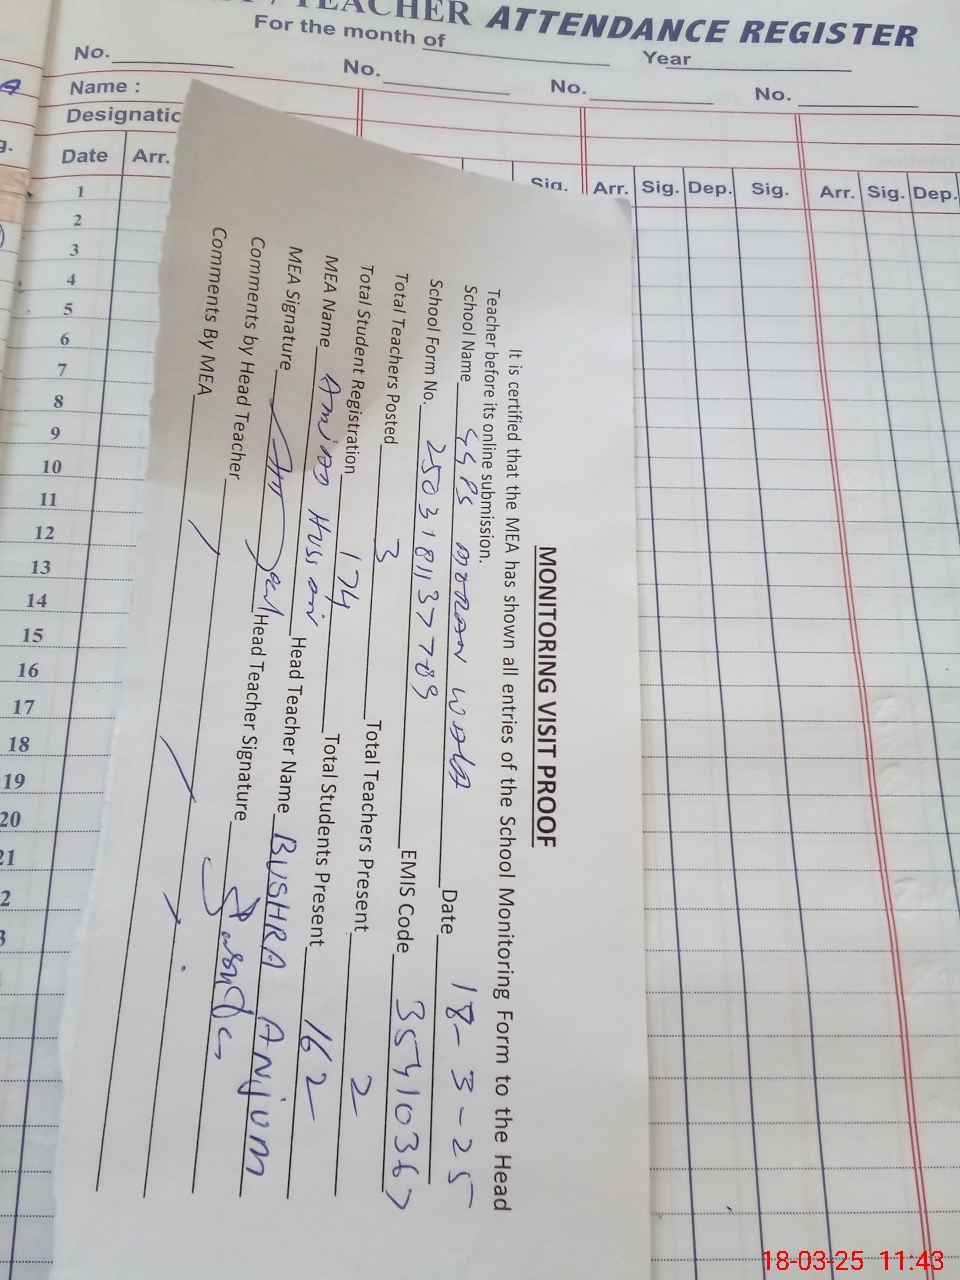 TEACHER ATTENDANCE REGISTER
For the month of Year
No. No. No. No.
Name :
Designatio
Date Arr. Sig. Arr. Sig. Dep. Sig. Arr. Sig. Dep.
1
2
3
4
5
6
7
8
9
10
11
12
13
14
15
16
17
18
19
20
21
MONITORING VISIT PROOF
It is certified that the MEA has shown all entries of the School Monitoring Form to the Head
Teacher before its online submission.
School Name GGPS MORAN WALA Date 18-3-25
School Form No. 2503181137789 EMIS Code 35410367
Total Teachers Posted 3 Total Teachers Present 2
Total Student Registration 174 Total Students Present 162
MEA Name Hussain Head Teacher Name BUSHRA ANJUM
MEA Signature Head Teacher Signature
Comments by Head Teacher
Comments By MEA
18-03-25 11:43